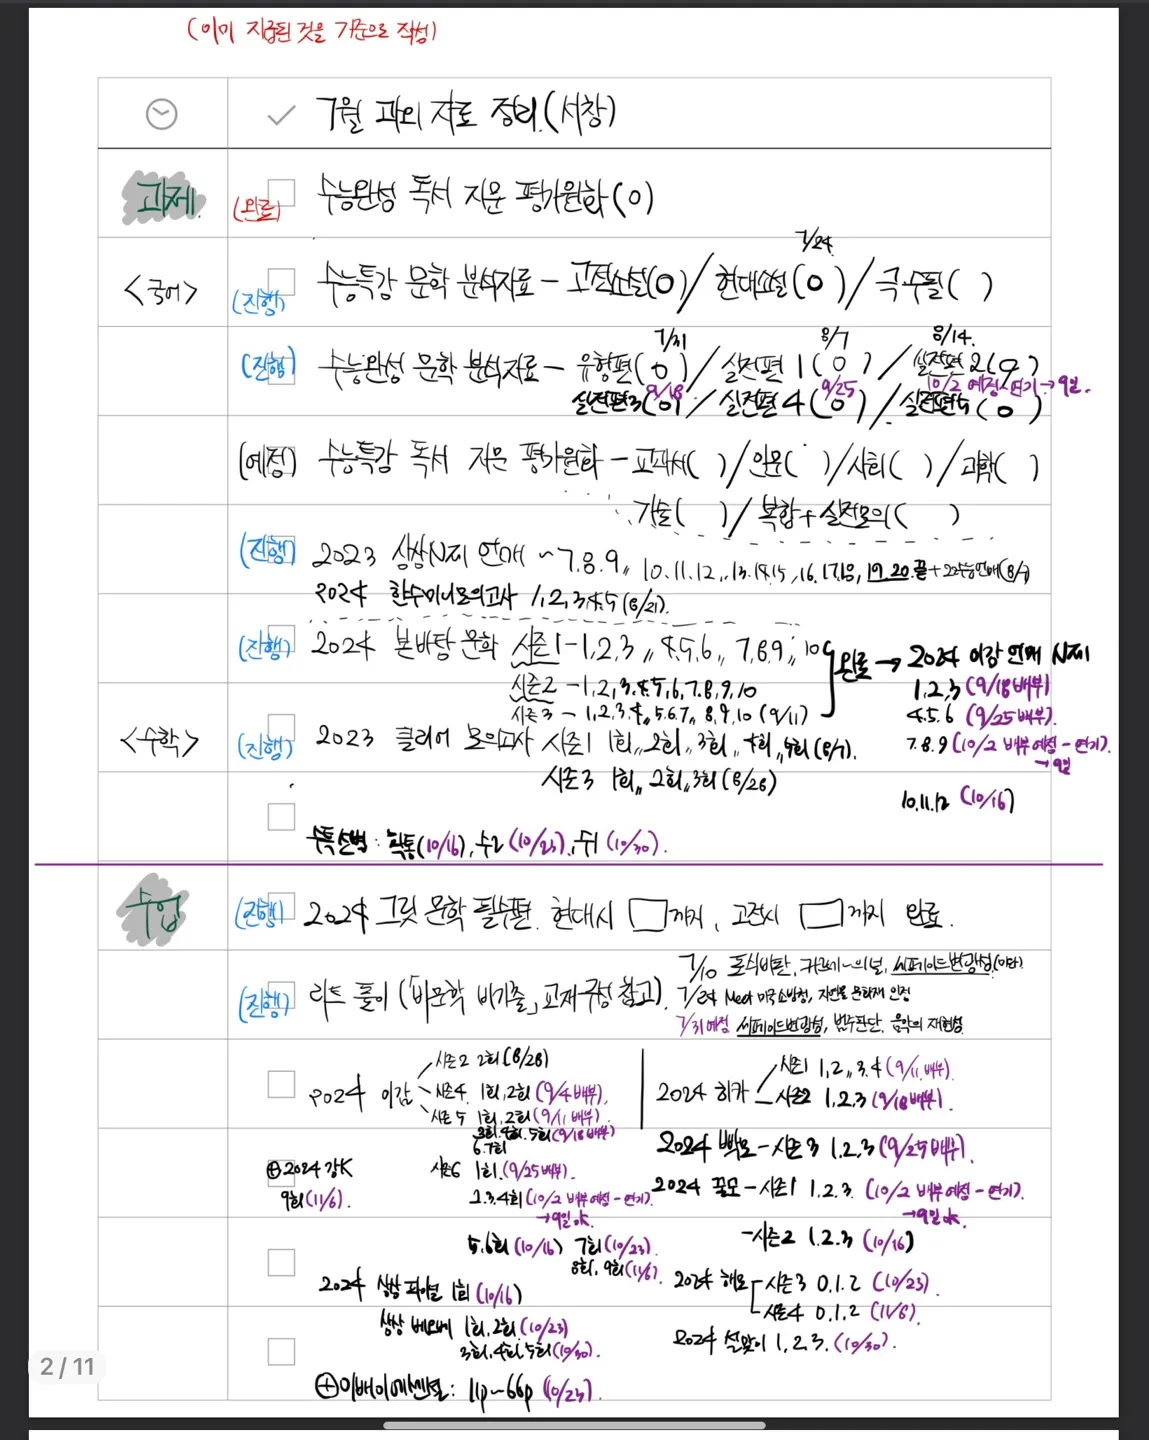 (이미 지급된 것을 기준으로 작성)
7월 과외 자료 정리.(서창)
과제.
(완료) 수능완성 독서 지문 평가원화(O)
<국어>
7/24
(진행) 수능특강 문학 분석자료 - 고전소설(O) / 현대소설(O) / 극수필( )
7/31 8/7 8/14.
(진행) 수능완성 문학 분석자료 - 유형편(O) / 실전편 1(O) / 실전편 2(O)
9/18 9/25 10/2 예정-연기→9일.
실전편3(O) / 실전편 4(O) / 실전편5(O)
(예정) 수능특강 독서 지문 평가원화 - 교과서( ) / 인문( ) / 사회( ) / 과학( )
기술( ) / 복합+실전모의( )
(진행) 2023 상상N제 연매 ~7.8.9,, 10.11.12,,13.14.15,,16.17.18, 19.20.끝
2024 한수미니모의고사 1,2,3,4,5(8/21).
(진행) 2024 본바탕 문학 시즌1-1,2,3 ,, 4,5,6 ,, 7,8,9 ,, 10
시즌2 -1,2,3,4,5,6,7,8,9,10
시즌3 - 1,2,3,4,,5,6,7,,8,9,10 (9/11)
완료 → 2024 이감 연매 N제
1,2,3 (9/18배부)
4.5.6 (9/25배부).
7.8.9 (10/2 배부예정-연기).
→9일
10.11.12 (10/16)
<수학>
(진행) 2023 클리어 모의고사 시즌1 1회,,2회,,3회,,4회,,5회(8/7).
시즌3 1회,,2회,,3회(8/28)
수특선별 : 확통(10/16), 수2(10/23), 수1(10/30).
수업
(진행) 2024 그릿 문학 필수편. 현대시 □까지, 고전시 □까지 완료.
(진행) 리트 풀이(「비문학 비기출」 교재구성 참고).
7/24 Meet 미국소방청, 자연물 문화재 인정
7/31예정 범주판단, 음악의 재현성
2024 이감
시즌2 2회(8/28)
시즌4. 1회,2회(9/4배부),
시즌5 1회,2회(9/11배부).
3회.4회.5회(9/18배부)
6.7회
시즌6 1회.(9/25배부).
2.3.4회(10/2 배부예정-연기).
→9일
5.6회(10/16) 7회(10/23).
8회, 9회(11/6).
2024 히카
시즌1 1,2,,3,4(9/11배부).
시즌2 1,2,3(9/18배부).
2024 빡모-시즌3 1.2.3(9/25배부).
2024 꿀모-시즌1 1.2.3. (10/2 배부예정-연기).
→9일
-시즌2 1.2.3 (10/16)
2024 해모
시즌3 0.1.2 (10/23).
시즌4 0.1.2 (11/6).
2024 설맞이 1,2,3.(10/30).
⊕2024 강K
9회(11/6).
2024 상상 파이널 1회(10/16)
상상 베오베 1회,2회(10/23)
3회,4회,5회(10/30).
⊕이배이에센셜: 11p~66p (10/23).
2 / 11